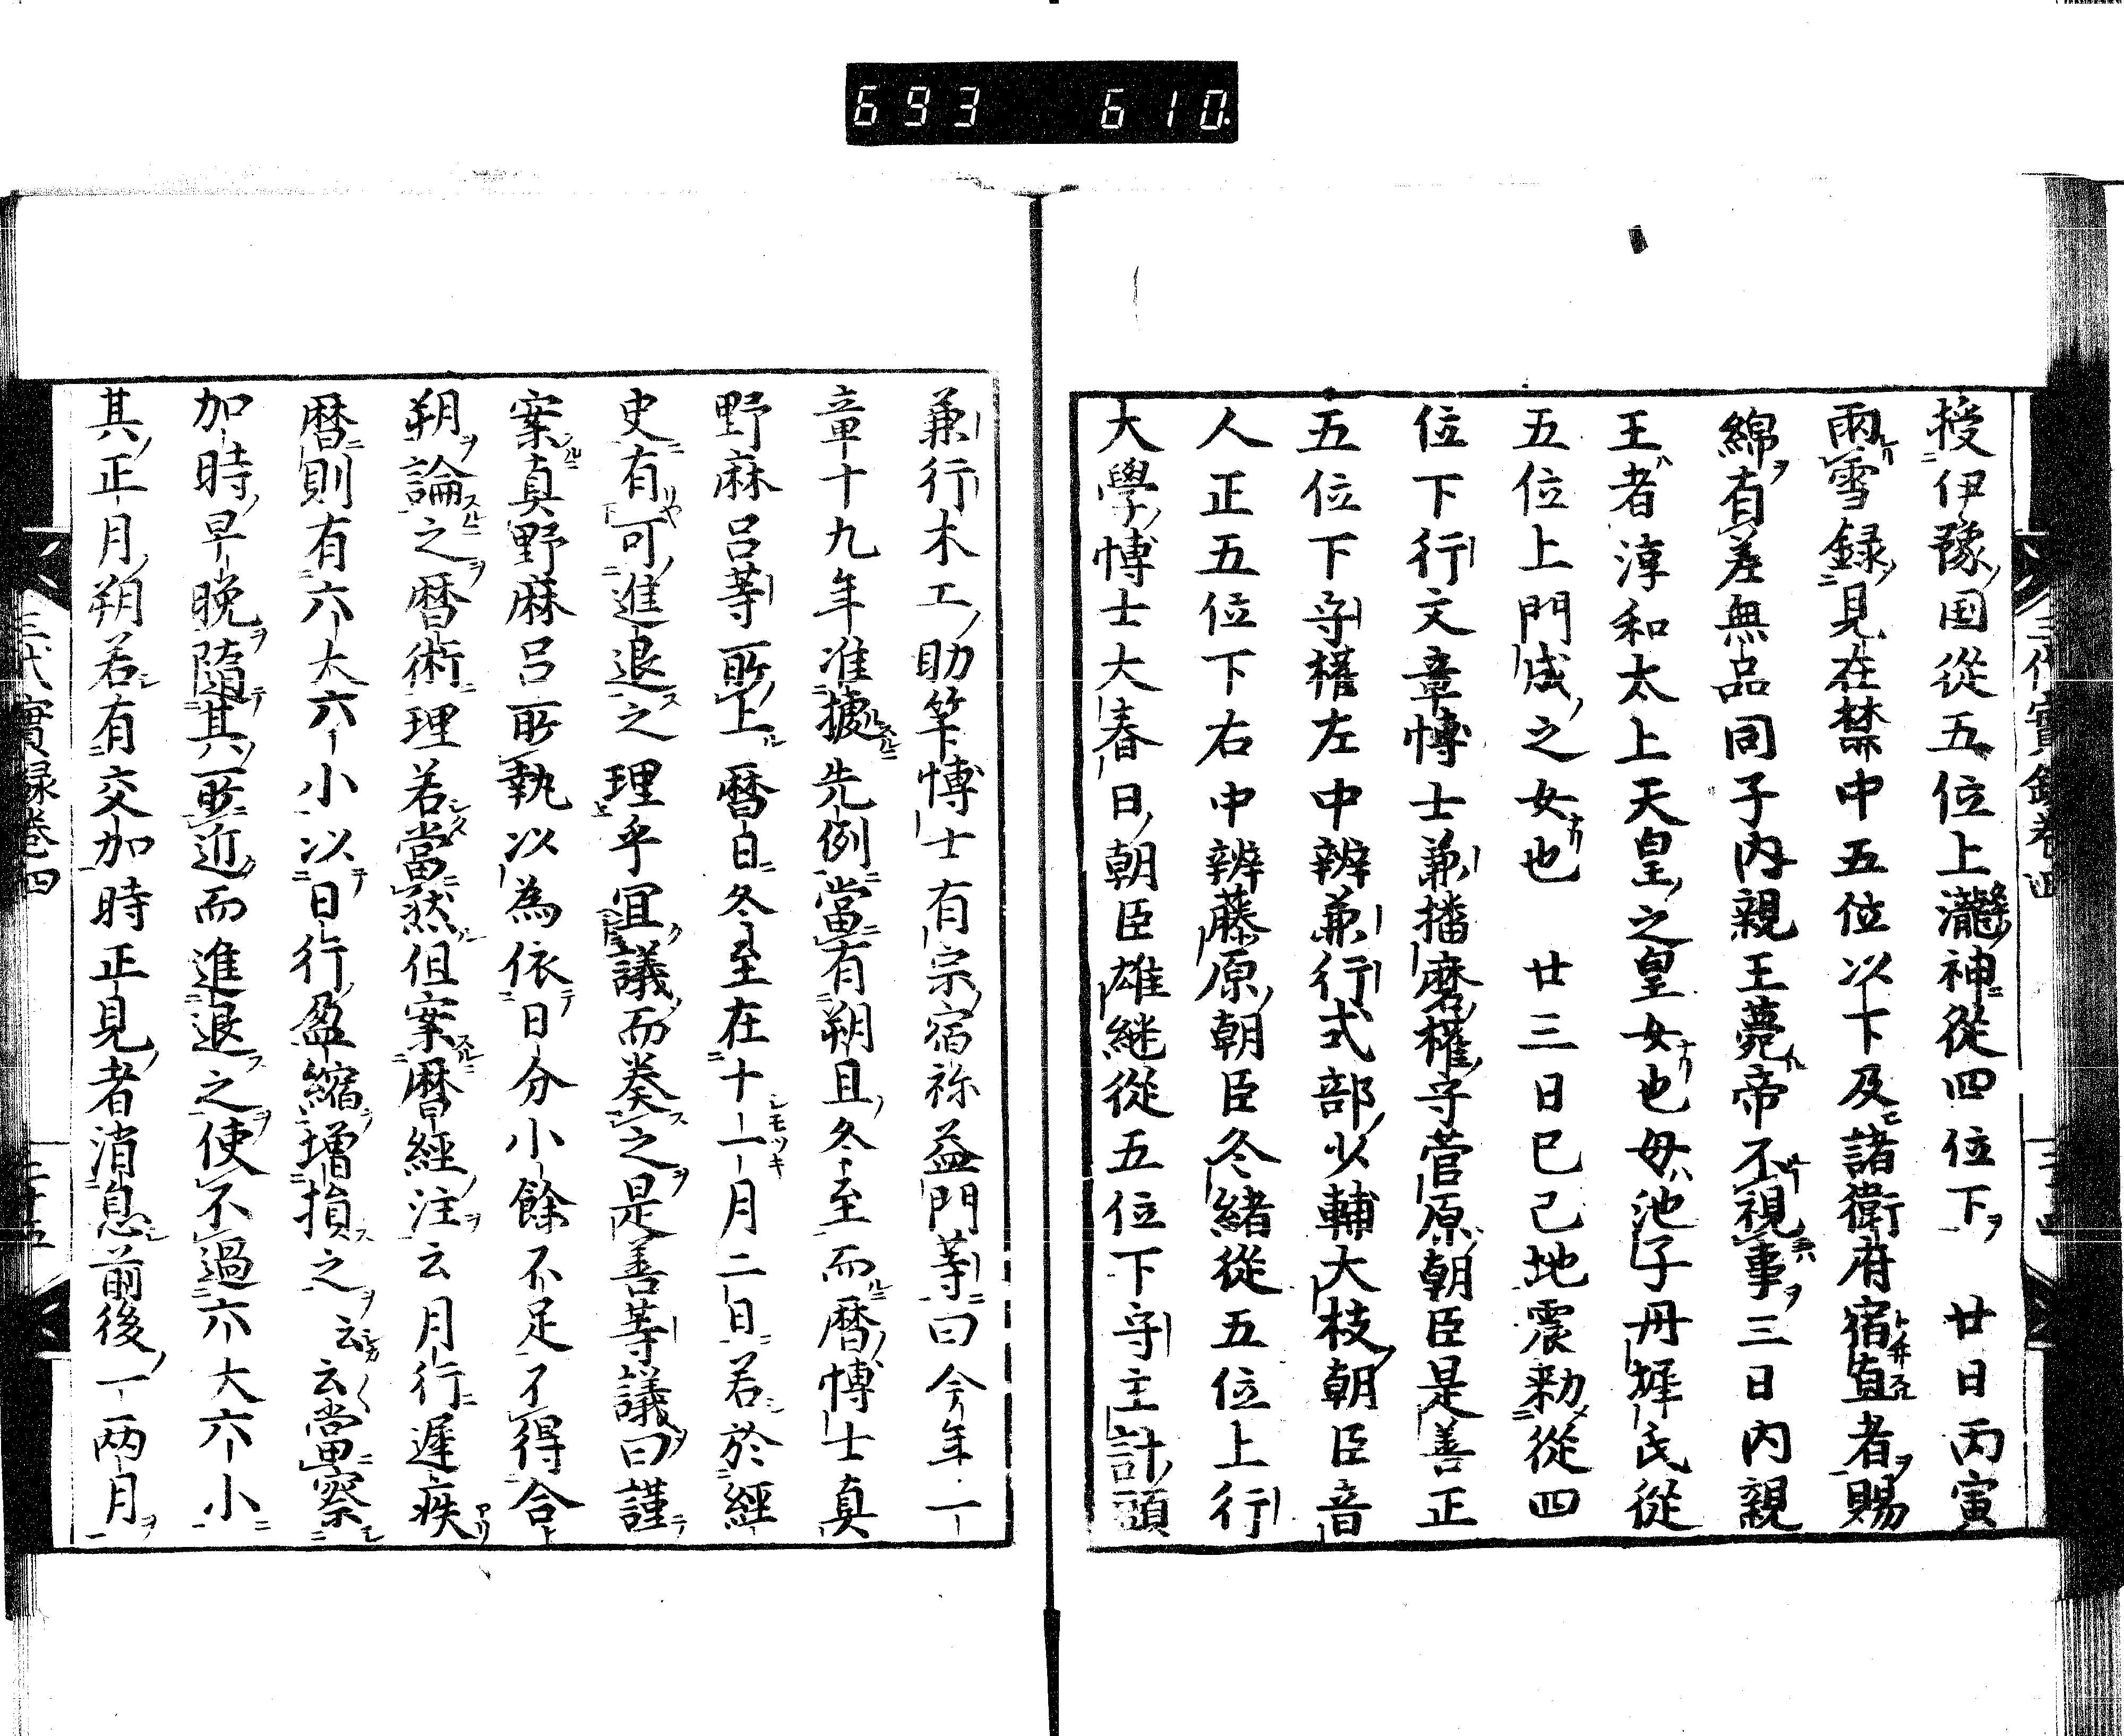 693 610
授伊豫国從五位上瀧神從四位下 廿日丙寅
雨雪録見在禁中五位以下及諸衛府宿直者賜
綿有差無品同子內親王薨帝不視事三日內親
王者淳和太上天皇之皇女也母池子丹墀氏從
五位上門成之女也 廿三日己巳地震勑從四
位下行文章博士兼播磨權守菅原朝臣是善正
五位下守權左中辨兼行式部少輔大枝朝臣音
人正五位下右中辨藤原朝臣冬緒從五位上行
大學博士大春日朝臣雄継從五位下守主計頭
兼行木工助笇博士有宗宿祢益門等曰今年一
章十九年准據先例當有朔旦冬至而暦博士真
野麻呂等所上暦日冬至在十一月二日若於經
史有可進退之理乎宜議而奏之是善等議曰謹
案真野麻呂所執以為依日分小餘不足不得合
朔論之暦術理若當然但案暦經注云月行遲疾
暦則有六大六小以日行盈縮增損之云云當察
加時早晩隨其所近而進退之使不過六大六小
其正月朔若有交加時正見者消息前後一兩月
三代實録卷四